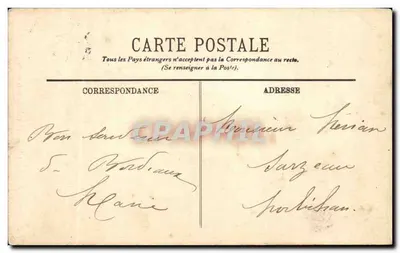 CARTE POSTALE
Tous les Pays étrangers n'acceptent pas la Correspondance au recto.
(Se renseigner à la Poste).
CORRESPONDANCE
Bon souvenir
de Bordeaux
Marie
ADRESSE
Monsieur
Sarzeau
Morbihan.
CPAPHIL